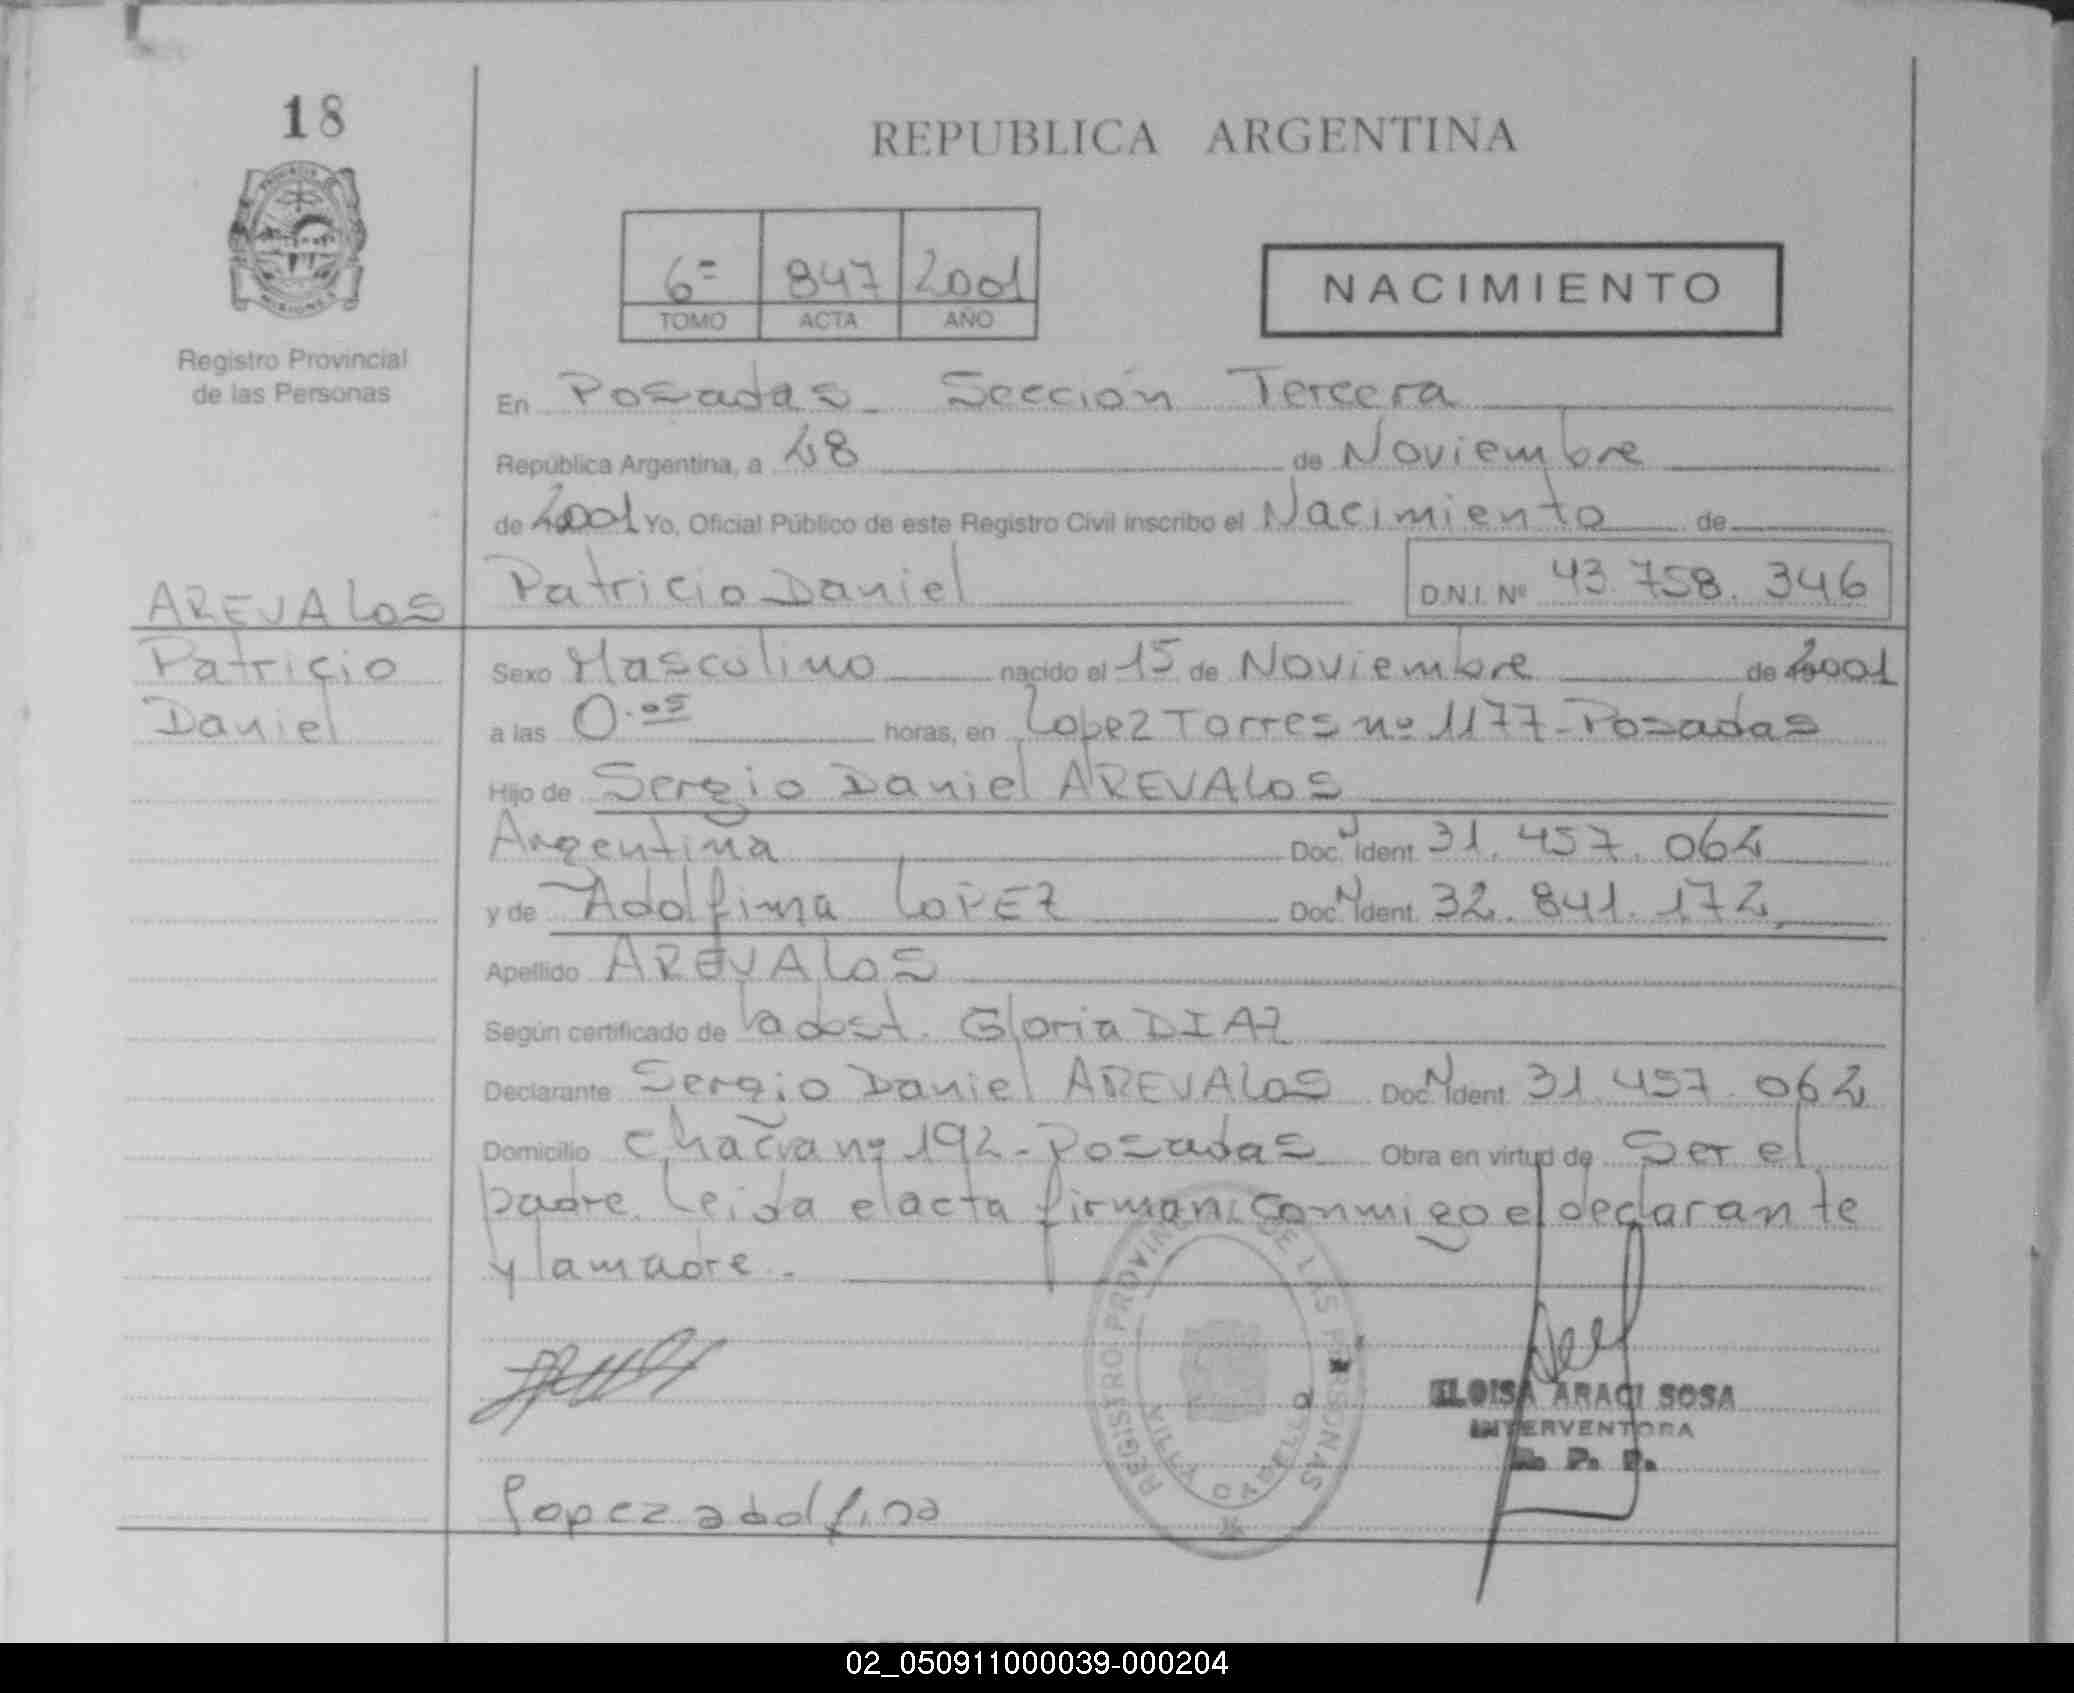 18
REPUBLICA ARGENTINA
6= 847 2001
TOMO ACTA AÑO
NACIMIENTO
Registro Provincial
de las Personas
En Posadas - Sección Tercera
República Argentina, a 28 de Noviembre
de 2001 Yo, Oficial Público de este Registro Civil inscribo el Nacimiento de
Patricio Daniel D.N.I. Nº 43.758.346
AREVALOS
Patricio
Daniel
Sexo Masculino nacido el 15 de Noviembre de 2001
a las 0.05 horas, en Lopez Torres nº 1177 - Posadas
Hijo de Sergio Daniel AREVALOS
Argentina Doc. Ident. 31.457.062
y de Adolfina LOPEZ Doc. Ident. 32.841.172
Apellido AREVALOS
Según certificado de la obst. Gloria DIAZ
Declarante Sergio Daniel AREVALOS Doc. Ident. 31.457.062
Domicilio nº 192 - Posadas Obra en virtud de Ser el
padre. Leida el acta firman conmigo el declarante
y la madre.-
REGISTRO PROVINCIAL DE LAS PERSONAS
ELOISA ARACI SOSA
INTERVENTORA
R. P. P.
Lopez adolfina
02_050911000039-000204